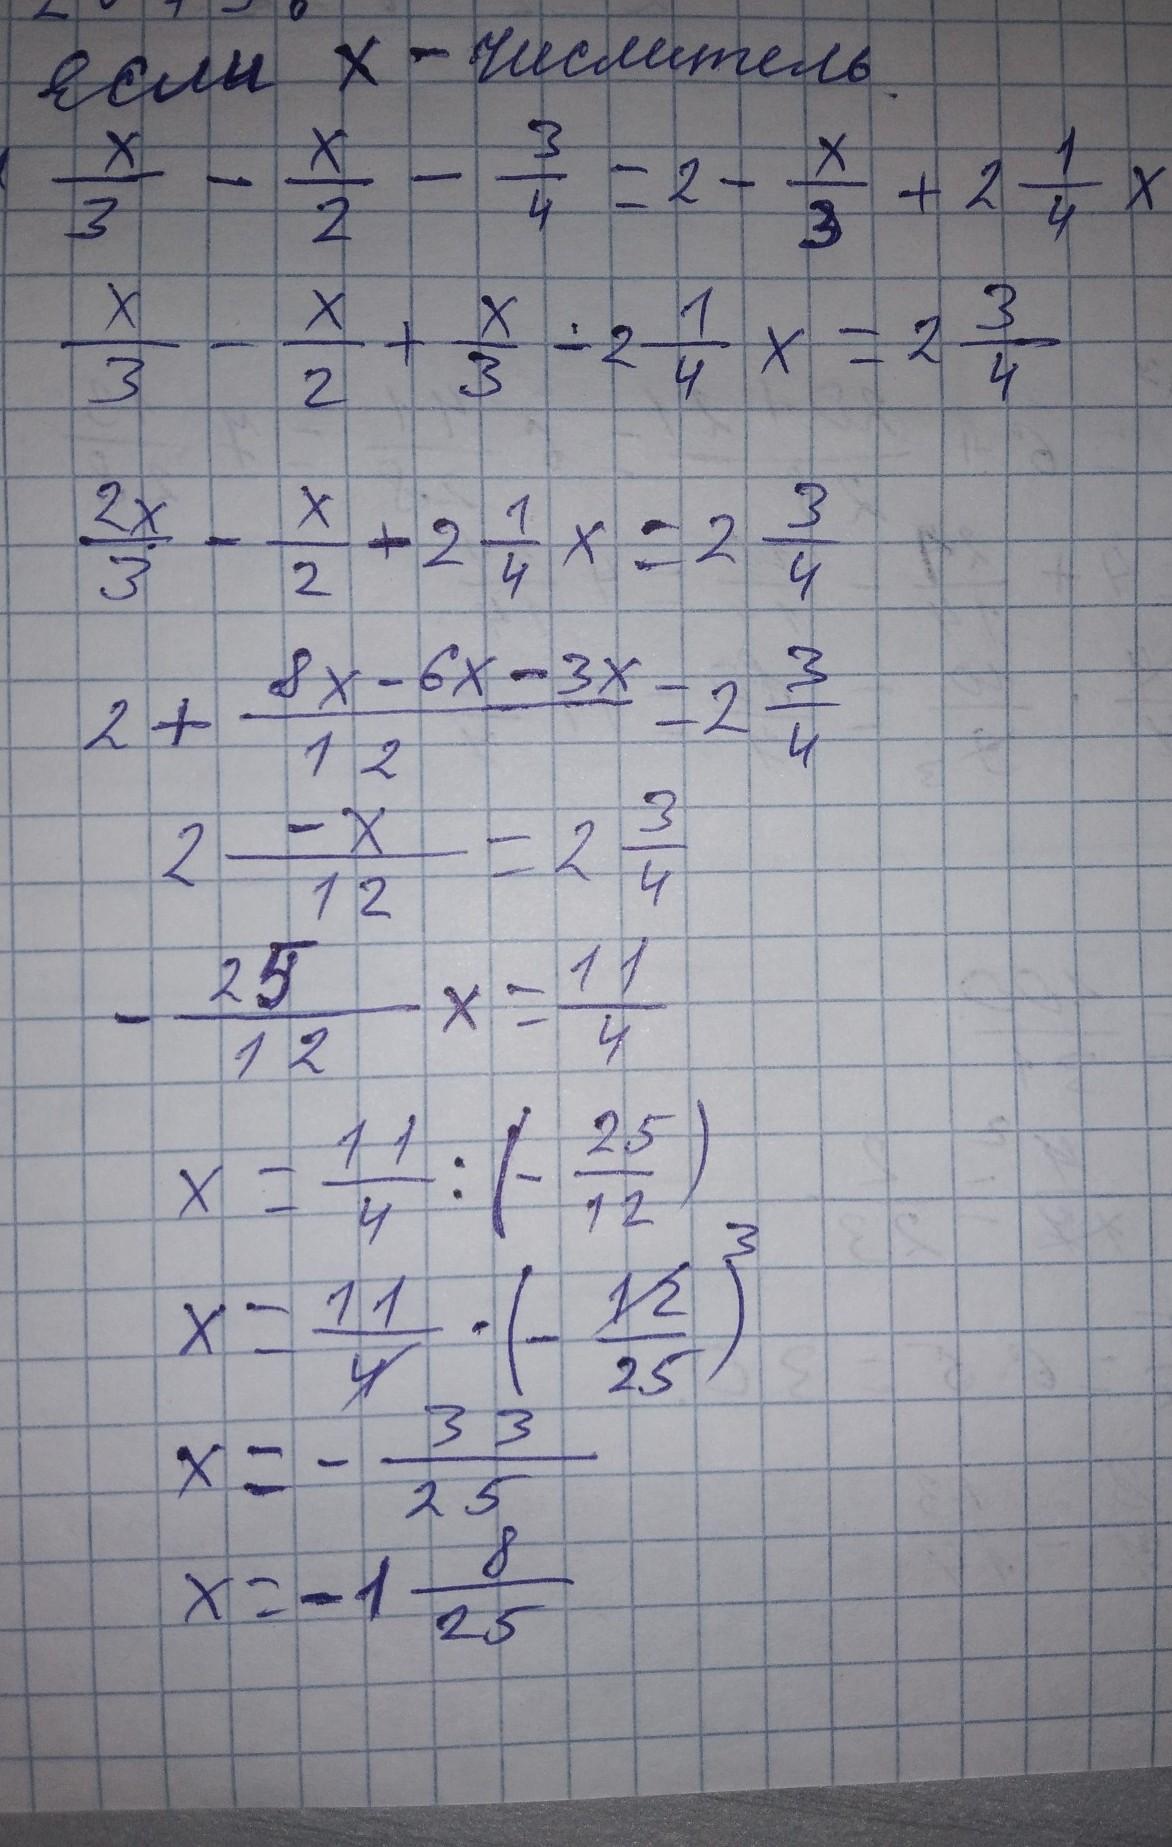 если х - числитель.
x/3 - x/2 - 3/4 = 2 - x/3 + 2 1/4 x
x/3 - x/2 + x/3 - 2 1/4 x = 2 3/4
2x/3 - x/2 - 2 1/4 x = 2 3/4
2 + 8x - 6x - 3x/12 = 2 3/4
2 -x/12 = 2 3/4
- 25/12 x = 11/4
x = 11/4 : (- 25/12)
x = 11/4 · (- 12/25) 3
x = - 33/25
x = -1 8/25